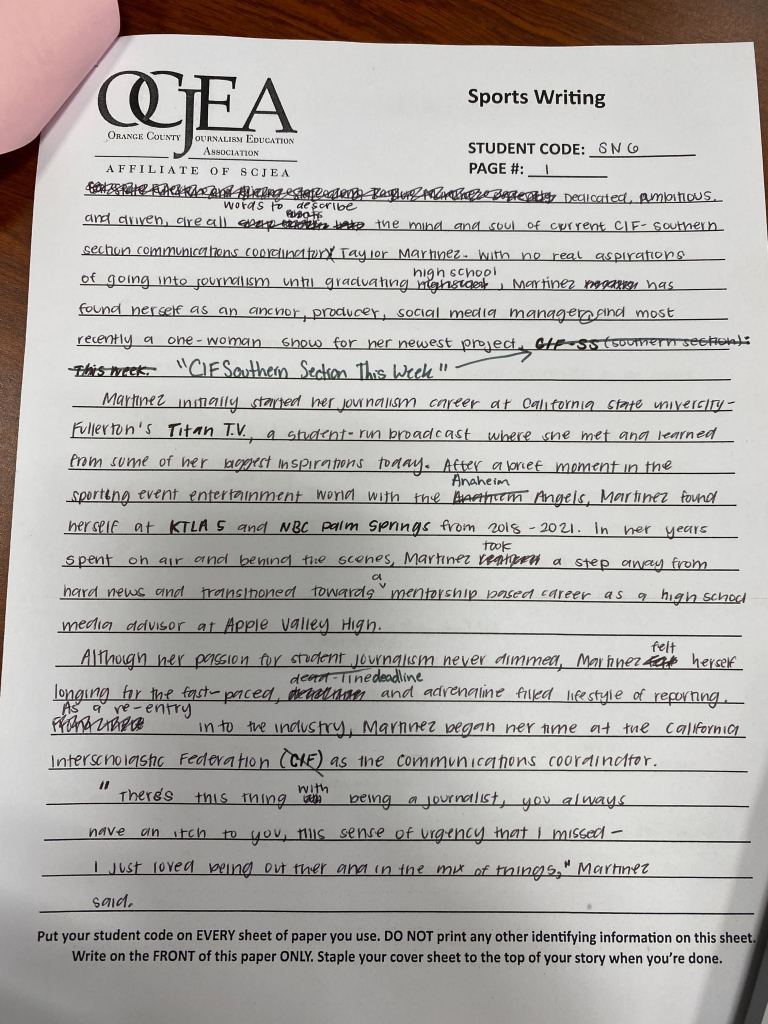 OCJEA
ORANGE COUNTY JOURNALISM EDUCATION
ASSOCIATION
AFFILIATE OF SCJEA
Sports Writing
STUDENT CODE: SNG
PAGE #: 1
Dedicated, ambitious,
words to describe
and driven, are all the mind and soul of current CIF-southern
section communications coordinator Taylor Martinez. With no real aspirations
high school
of going into journalism until graduating , Martinez has
found herself as an anchor, producer, social media manager, and most
recently a one-woman show for her newest project, CIF-SS (southern section):
This week. "CIF Southern Section This Week"
Martinez initially started her journalism career at California state university-
Fullerton's Titan T.V., a student-run broadcast where she met and learned
from some of her biggest inspirations today. After a brief moment in the
Anaheim
sporting event entertainment world with the Anaheim Angels, Martinez found
herself at KTLA 5 and NBC palm springs from 2018-2021. In her years
took
spent on air and behind the scenes, Martinez a step away from
a
hard news and transitioned towards mentorship based career as a high school
media advisor at Apple Valley High.
felt
Although her passion for student journalism never dimmed, Martinez herself
dead-line deadline
longing for the fast-paced, and adrenaline filled lifestyle of reporting.
As a re-entry
in to the industry, Martinez began her time at the California
Interscholastic Federation (CIF) as the communications coordinator.
with
"There's this thing being a journalist, you always
have an itch to you, this sense of urgency that I missed –
I just loved being out ther and in the mix of things," Martinez
said.
Put your student code on EVERY sheet of paper you use. DO NOT print any other identifying information on this sheet.
Write on the FRONT of this paper ONLY. Staple your cover sheet to the top of your story when you're done.